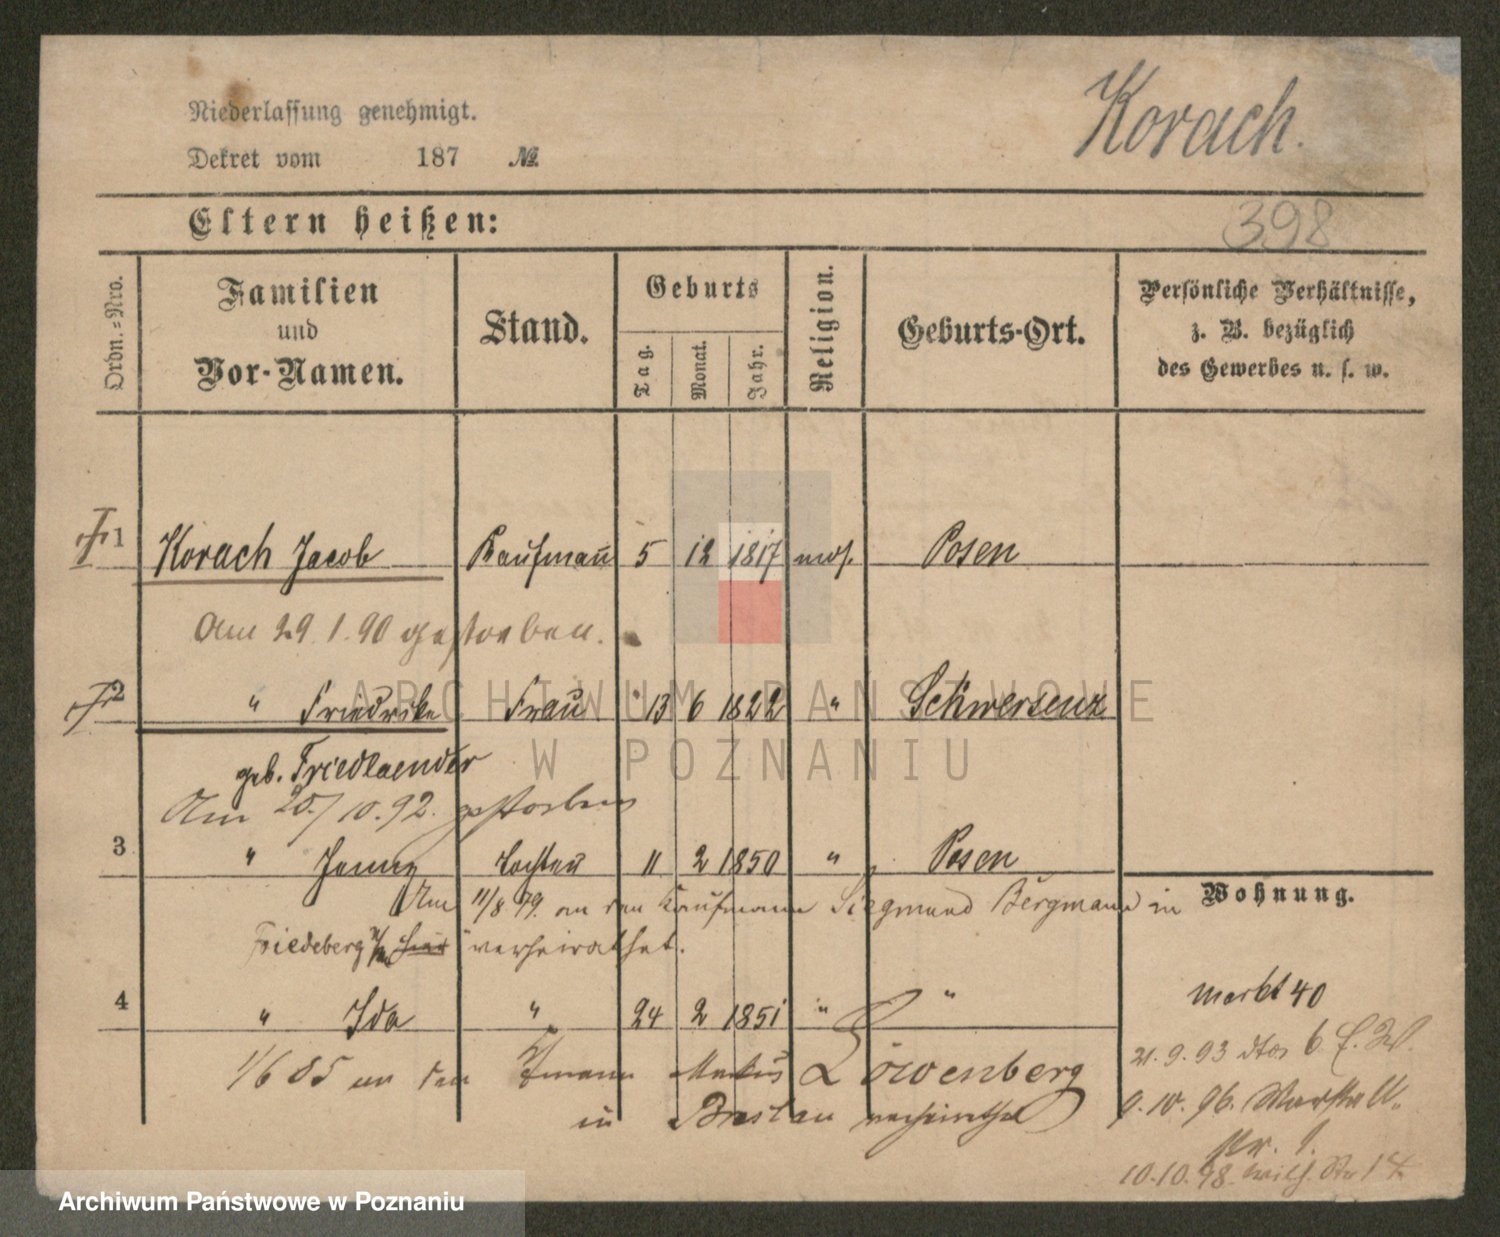 Niederlassung genehmigt.
Korach.
Dekret vom 187 №
Eltern heißen:
398
Ordn.=Nro.
Familien
und
Vor-Namen.
Stand.
Geburts
Tag.
Monat.
Jahr.
Religion.
Geburts-Ort.
Persönliche Verhältnisse,
z. B. bezüglich
des Gewerbes u. s. w.
1 Korach Jacob Kaufmann 5 12 1817 mos. Posen
Am 29.1.90 gestorben.
2 " Friedrike Frau 13 6 1822 " Schwersenz
geb. Friedlaender
Am 25/10.92. gestorben
3 " Jenny Tochter 11 2 1850 " Posen
Am 11/8 79. an den Kaufmann Siegmund Bergmann in
Friedeberg verheirathet.
Wohnung.
4 " Ida " 24 2 1851 " "
Markt 40
1/6 85 an den Kfmann Markus Löwenberg
in Breslau verheirathet
21.9.93 dto 6.
9.10.96.
10.10.98. Wilh. Str 14
ARCHIWUM PAŃSTWOWE
W POZNANIU
Archiwum Państwowe w Poznaniu